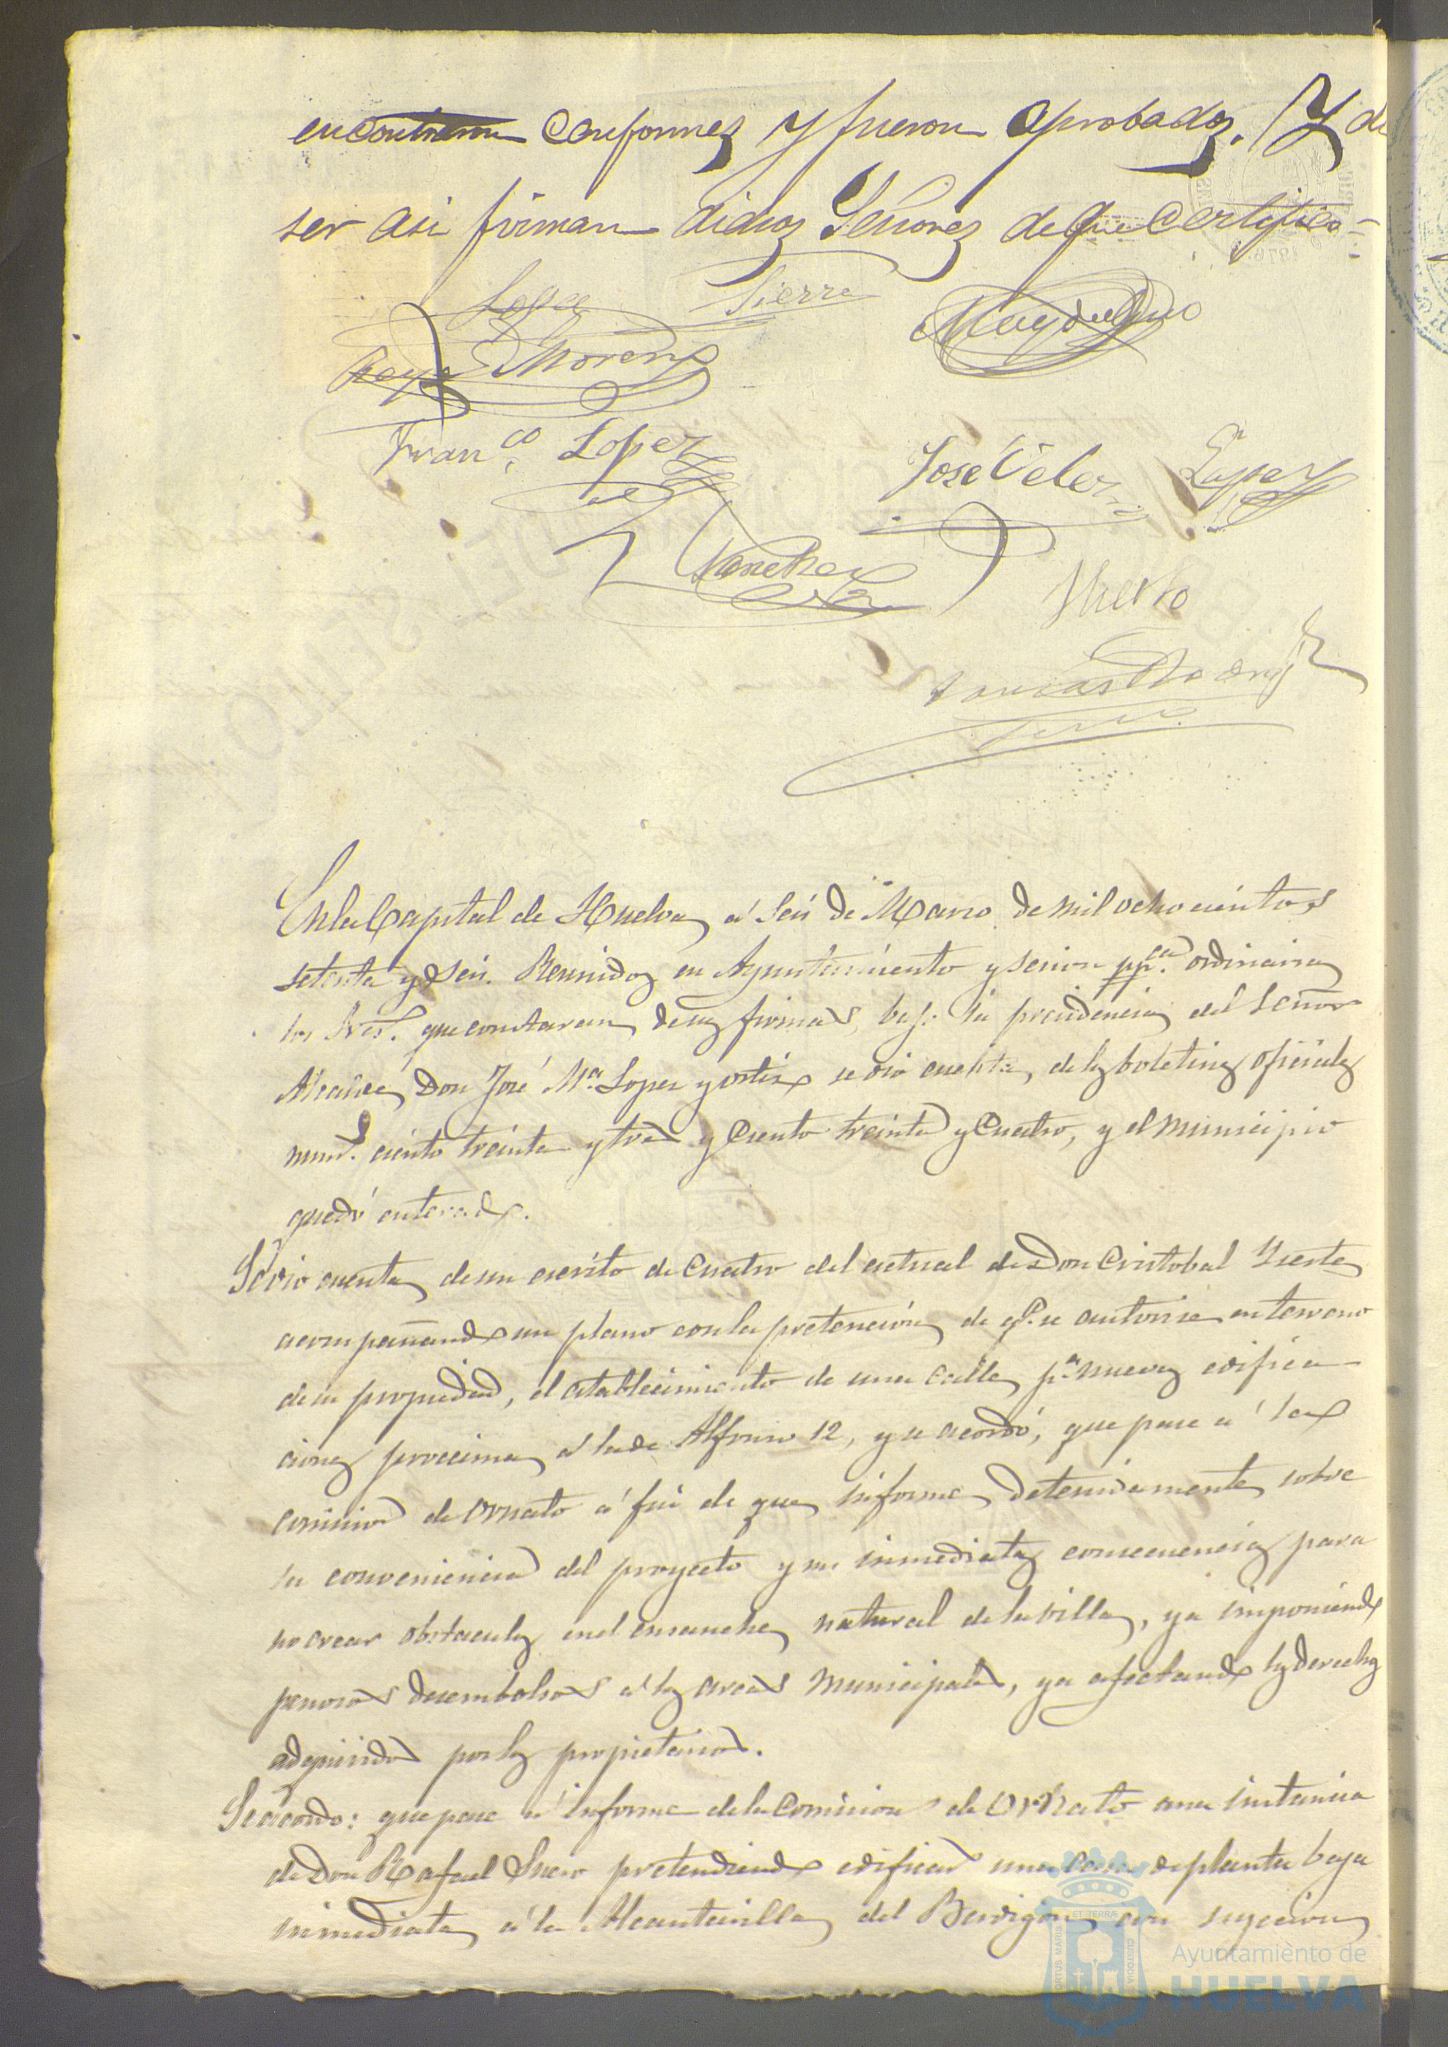 encontraron conformes y fueron aprobados. Y de
ser asi firman dichos Señores de que certifico=
Lopez Sierra
Moreno
Franco Lopez
José Velez Lopez
Sanchez
Yuerto
En la Capital de Huelva, á seis de Marzo de mil ochocientos
setenta y seis. Reunidos en Ayuntamiento y sesion ppca. ordinaria
los Sres. que constaran de sus firmas, bajo la presidencia del Señor
Alcalde, Don José Ma. Lopez y Ortiz se dió cuenta, de los boletines oficiales
numrs. ciento treinta y tres y Ciento treinta y Cuatro, y el municipio
quedó enterado.
Se dio cuenta de un escrito de Cuatro del actual de Don Cristobal
acompañando un plano con la pretención de qe. se autorise en terreno
de su propiedad, el establecimiento de una calle, pa. nuevas edifica-
ciones procsima, á la de Alfonso 12, y se acordó, que pase á la
comision de Ornato á fin de que informe detenidamente sobre
la conveniencia del proyecto y sus inmediatas consecuencias para
no crear obstaculos en el ensanche natural de la villa, ya imponiendo
penosos desembolsos á las arcas Municipales, ya afectando los derechos
adquiridos por los propietarios.
Se acordó: que pase á informe de la Comision de Ornato una instancia
de Don Rafael Suero pretendiendo edificar una casa de planta baja
inmediata á la Alcantarilla del con sugecion
Ayuntamiento de
HUELVA